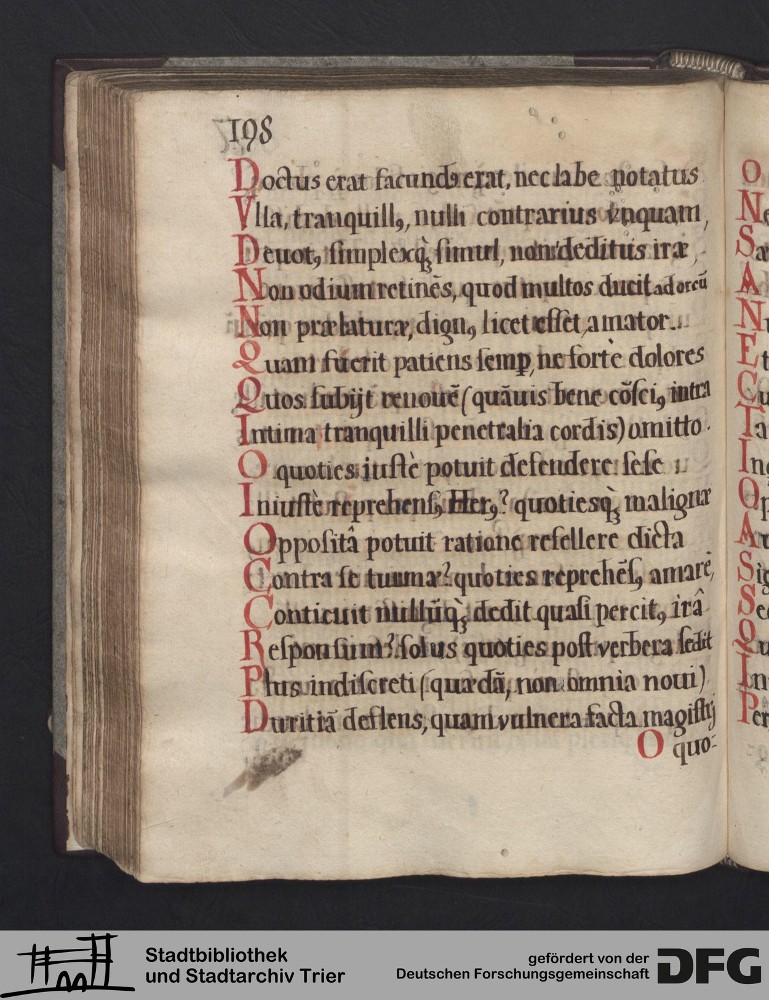 198
Doctus erat facundꝯ erat, nec labe notatus
Vlla, tranquillꝯ, nulli contrarius vnquam,
Deuotꝯ simplexq́ꝫ simul, non deditus iræ,
Non odium retinẽs, quod multos ducit ad orcũ
Non prælaturæ, dignꝯ licet esset, amator.
Quam fuerit patiens semꝑ, ne fortè dolores
Quos subijt renouẽ (quãuis bene cõsciꝯ intra
Intima tranquilli penetralia cordis) omitto.
O quoties iustè potuit defendere sese
Iniustè reprehensꝯ Herꝯ? quotiesq́ꝫ malignæ
Oppositâ potuit ratione refellere dicta
Contra se turmæ? quoties reprehẽsꝯ amarè,
Conticuit nullũq́ꝫ dedit quasi percitꝯ irâ
Responsum? solus quoties post verbera sedit
Plus indiscreti (quædã, non omnia noui)
Duritiã deflens, quam vulnera facta magistrj
O quo-
O
N
S
A
N
E
C
T
I
O
A
S
S
Q
I
P
Stadtbibliothek
und Stadtarchiv Trier
gefördert von der
Deutschen Forschungsgemeinschaft
DFG